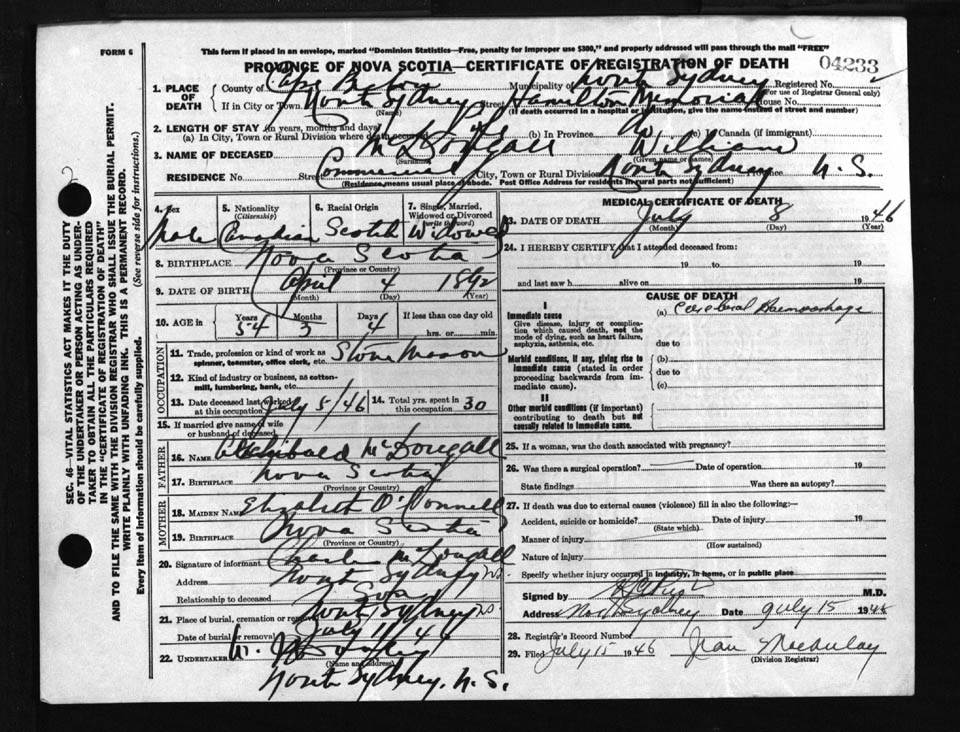 FORM 6
This form if placed in an envelope, marked "Dominion Statistics—Free, penalty for improper use $300," and properly addressed will pass through the mail "FREE"
PROVINCE OF NOVA SCOTIA—CERTIFICATE OF REGISTRATION OF DEATH
04233
SEC. 46—VITAL STATISTICS ACT MAKES IT THE DUTY
OF THE UNDERTAKER OR PERSON ACTING AS UNDER-
TAKER TO OBTAIN ALL THE PARTICULARS REQUIRED
IN THE "CERTIFICATE OF REGISTRATION OF DEATH"
AND TO FILE THE SAME WITH THE DIVISION REGISTRAR WHO SHALL ISSUE THE BURIAL PERMIT.
WRITE PLAINLY WITH UNFADING INK. THIS IS A PERMANENT RECORD.
Every item of Information should be carefully supplied. (See reverse side for instructions.)
2
1. PLACE OF DEATH
County of Cape Breton Municipality of North Sydney Registered No.
(For use of Registrar General only)
If in City or Town North Sydney Street Hamilton Memorial House No.
(Name) (If death occurred in a hospital or institution, give the name instead of street and number)
2. LENGTH OF STAY (in years, months and days)
(a) In City, Town or Rural Division where death occurred (b) In Province (c) In Canada (if immigrant)
3. NAME OF DECEASED McDougall William
(Surname) (Given name or names)
RESIDENCE No. Street Commercial City, Town or Rural Division North Sydney N.S.
(Residence means usual place of abode. Post Office Address for residents in rural parts not sufficient)
4. Sex Male
5. Nationality (Citizenship) Canadian
6. Racial Origin Scotch
7. Single, Married, Widowed or Divorced (write the word) Widowed
8. BIRTHPLACE Nova Scotia
(Province or Country)
9. DATE OF BIRTH April 4 1892
(Month) (Day) (Year)
10. AGE in Years 54 Months 3 Days 4 If less than one day old
hrs. or min.
OCCUPATION
11. Trade, profession or kind of work as spinner, teamster, office clerk, etc. Stone Mason
12. Kind of industry or business, as cotton-mill, lumbering, bank, etc.
13. Date deceased last worked at this occupation July 5/46
14. Total yrs. spent in this occupation 30
15. If married give name of wife or husband of deceased
FATHER
16. NAME Archibald McDougall
17. BIRTHPLACE Nova Scotia
(Province or Country)
MOTHER
18. MAIDEN NAME Elizabeth O'Donnell
19. BIRTHPLACE Nova Scotia
(Province or Country)
20. Signature of informant Charles McDougall
Address North Sydney NS.
Relationship to deceased Son
21. Place of burial, cremation or removal North Sydney NS
Date of burial or removal July 11/46
22. UNDERTAKER W. J.
(Name and address)
North Sydney, N.S.
MEDICAL CERTIFICATE OF DEATH
23. DATE OF DEATH July 8 1946
(Month) (Day) (Year)
24. I HEREBY CERTIFY that I attended deceased from:
19 to 19
and last saw h alive on 19
CAUSE OF DEATH
I
Immediate cause
Give disease, injury or complication which caused death, not the mode of dying, such as heart failure, asphyxia, asthenia, etc.
(a) Cerebral Haemorrhage
due to
Morbid conditions, if any, giving rise to immediate cause (stated in order proceeding backwards from immediate cause).
(b)
due to
(c)
II
Other morbid conditions (if important) contributing to death but not causally related to immediate cause.
25. If a woman, was the death associated with pregnancy?
26. Was there a surgical operation? Date of operation 19
State findings Was there an autopsy?
27. If death was due to external causes (violence) fill in also the following:—
Accident, suicide or homicide? Date of injury 19
(State which)
Manner of injury
(How sustained)
Nature of injury
Specify whether injury occurred in industry, in home, or in public place
Signed by M.D.
Address North Sydney Date July 15 1946
28. Registrar's Record Number
29. Filed July 15 1946 Jean MacAulay
(Division Registrar)